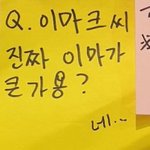 Q. 이마크씨
진짜 이마가
큰가용?
네...